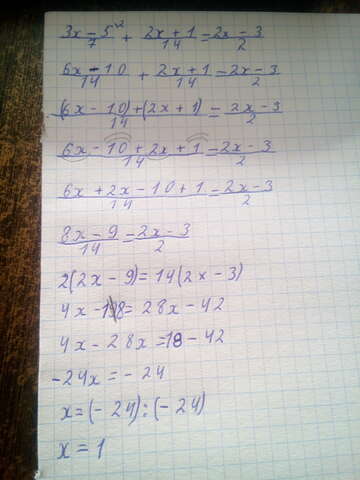 (3x - 5)/7 ·2 + (2x + 1)/14 = (2x - 3)/2
(6x - 10)/14 + (2x + 1)/14 = (2x - 3)/2
((6x - 10) + (2x + 1))/14 = (2x - 3)/2
(6x - 10 + 2x + 1)/14 = (2x - 3)/2
(6x + 2x - 10 + 1)/14 = (2x - 3)/2
(8x - 9)/14 = (2x - 3)/2
2(2x - 9) = 14(2x - 3)
4x - 18 = 28x - 42
4x - 28x = 18 - 42
-24x = - 24
x = (- 24) : (- 24)
x = 1